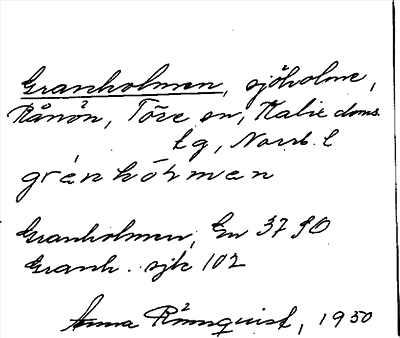 Granholmen, sjöholme,
Rånön, Töre sn, Kalix doms.
tg, Norrb. l
grénhòlmen
Granholmen, Gn 37 SO
Granh. sjk 102
Anna Rönnquist, 1930